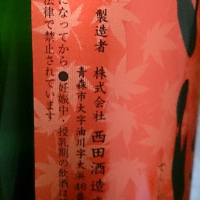 製造者 株式会社 西田酒造
青森市大字油川字大浜46
になってから●妊娠中・授乳期の飲酒は
法律で禁止されています